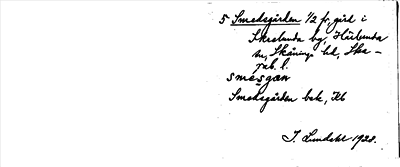 5 Smedsgården 1/2 fr. gård i
Skalunda by, Härlunda
sn, Skånings hd, Ska-
rab. l.
smesgæn
Smedsgården bale, Kb
J. Lundahl 1928.